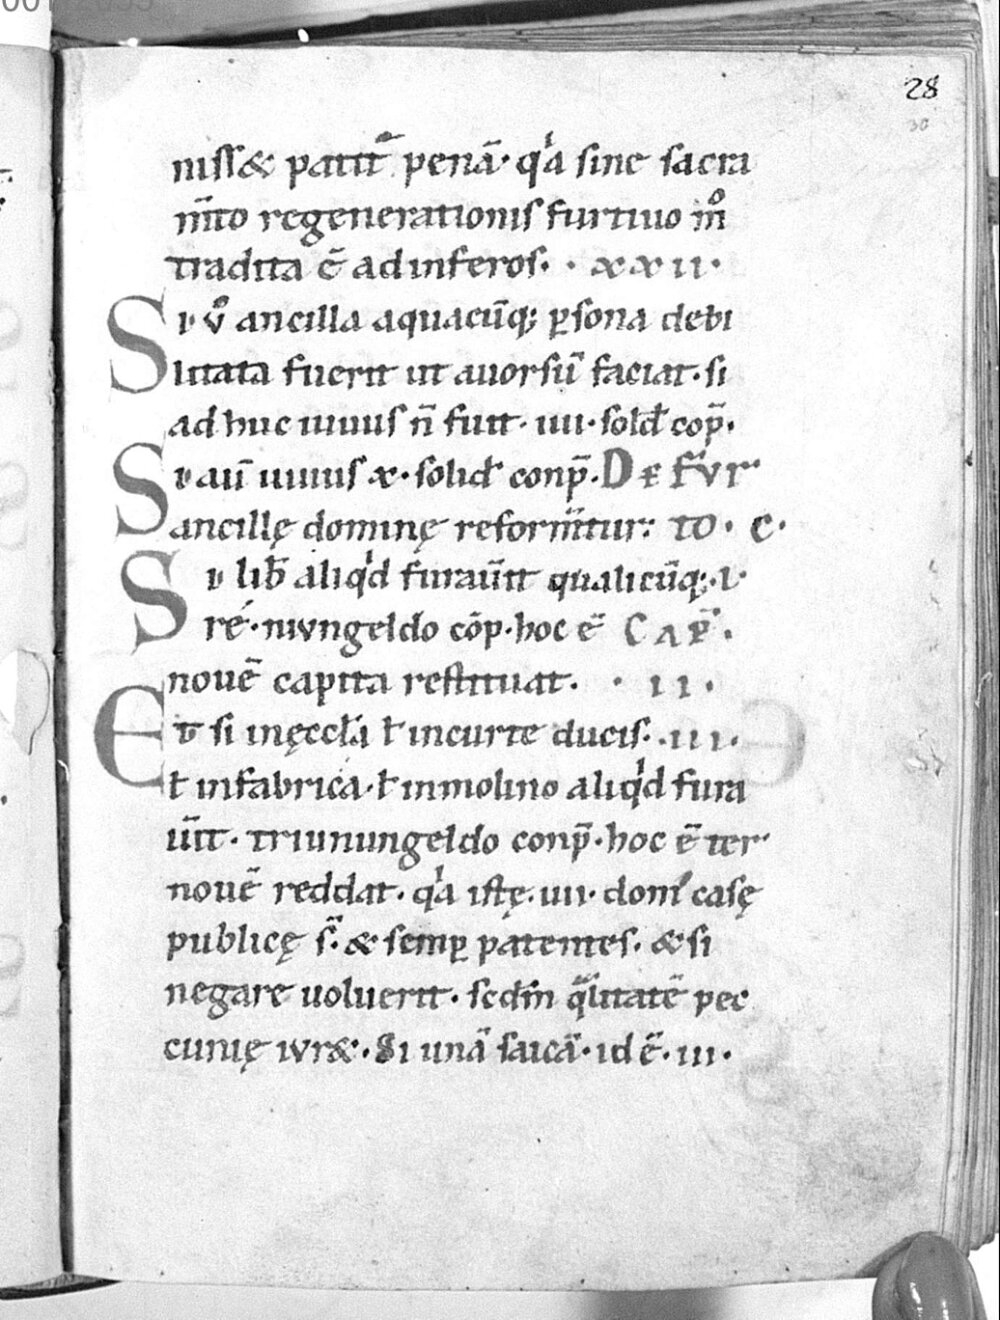 28
30
niss& patit̄ penā· qͥa sine sacra
m̄to regenerationis furtiuo m̊
tradita ē ad inferos· · xxii·
Si v̊ ancilla a quacūq; ꝑsona debi
litata fuerit ut auorsū faciat· si
ad huc uiuus n̄ fuit· iiii· solđ cop̄·
Si aū uiuus x· solid̄ conp̄· De fur
ancillę dominę reform̄tur: to· c·
Si lib̄ aliqͥd furaūit qualicūq;· i·
ré· niungeldo cōp· hoc ē Cap̄·
nouē capita restituat· · ii·
Et si in ęccła ł in curte ducis· ·iii·
ł in fabrica· ł in molino aliqͥd fura
ūit· triuniungeldo conp̄· hoc ē ter
nouē reddat· qͥa istę· iiii· dom' casę
publicę s̄· & semꝑ patentes· & si
negare uoluerit· scdm̄ qͣlitatē pec
cunię iur&· Si unā saicā· id ē· iii·